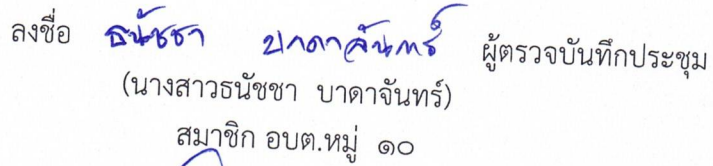 ลงชื่อ ธนัชชา บาดาจันทร์ ผู้ตรวจบันทึกประชุม
(นางสาวธนัชชา บาดาจันทร์)
สมาชิก อบต.หมู่ ๑๐